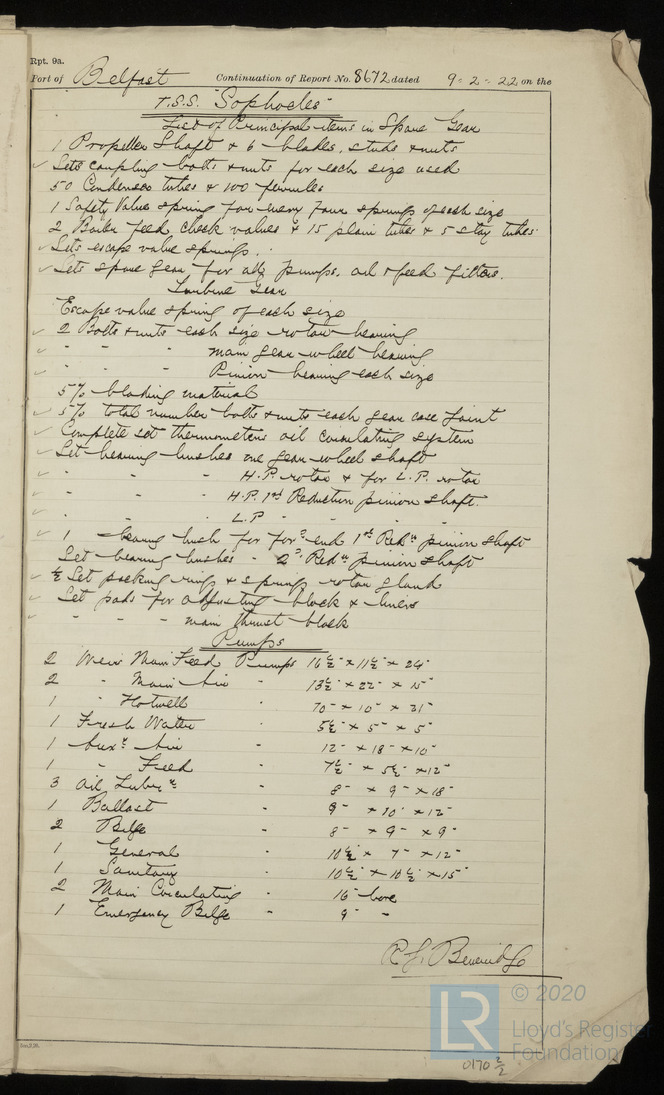 Rpt. 9a.
Port of Belfast Continuation of Report No. 8672 dated 9-2-22 on the
T.S.S. "Sophocles"
List of Principal items in Spare Gear
1 Propeller Shaft & 6 blades, studs & nuts
✓ Sets coupling bolts & nuts for each size used
50 Condenser tubes & 100 ferrules
1 Safety Valve spring for every four springs of each size
2 Boiler feed check valves & 15 plain tubes & 5 stay tubes
✓ Sets escape valve springs.
✓ Sets spare gear for all pumps, oil & feed filters.
Turbine Gear
Escape valve spring of each size
✓ 2 Bolts & nuts each size rotor bearing
✓ " " " main gear wheel bearing
✓ " " " Pinion bearing each size
5% blading material
✓ 5% total number bolts & nuts each gear case joint
✓ Complete set thermometers oil circulating system
✓ Set bearing bushes one gear wheel shaft
✓ " " " H.P. rotor & for L.P. rotor
✓ " " " H.P. 1st Reduction pinion shaft.
✓ " " " L.P " " " "
✓ 1 bearing bush for ford end 1st Redn pinion shaft
Set bearing bushes " 2d Redn pinion shaft
✓ ½ Set packing rings & springs rotor gland
✓ Set pads for adjusting block & liners
✓ " " " main thrust block
Pumps
2 Weir Main Feed Pumps 16½" x 11½" x 24"
2 " Main Air " 13½" x 22" x 15"
1 " Hotwell " 10" x 21"
1 Fresh Water 5½" x 5" x 5"
1 Auxy Air " 12" x 18" x 10"
1 " Feed " 7½" x 5½" x 12"
3 Oil Lubrn " 8" x 9" x 18"
1 Ballast 9" x 10" x 12"
2 Bilge " 8" x 9" x 9"
1 General 10½" x 7" x 12"
1 Sanitary 10½" x 10½" x 15"
2 Main Circulating " 16" bore
1 Emergency Bilge " 9" "
LR
© 2020
Lloyd's Register
Foundation
0170 2/2